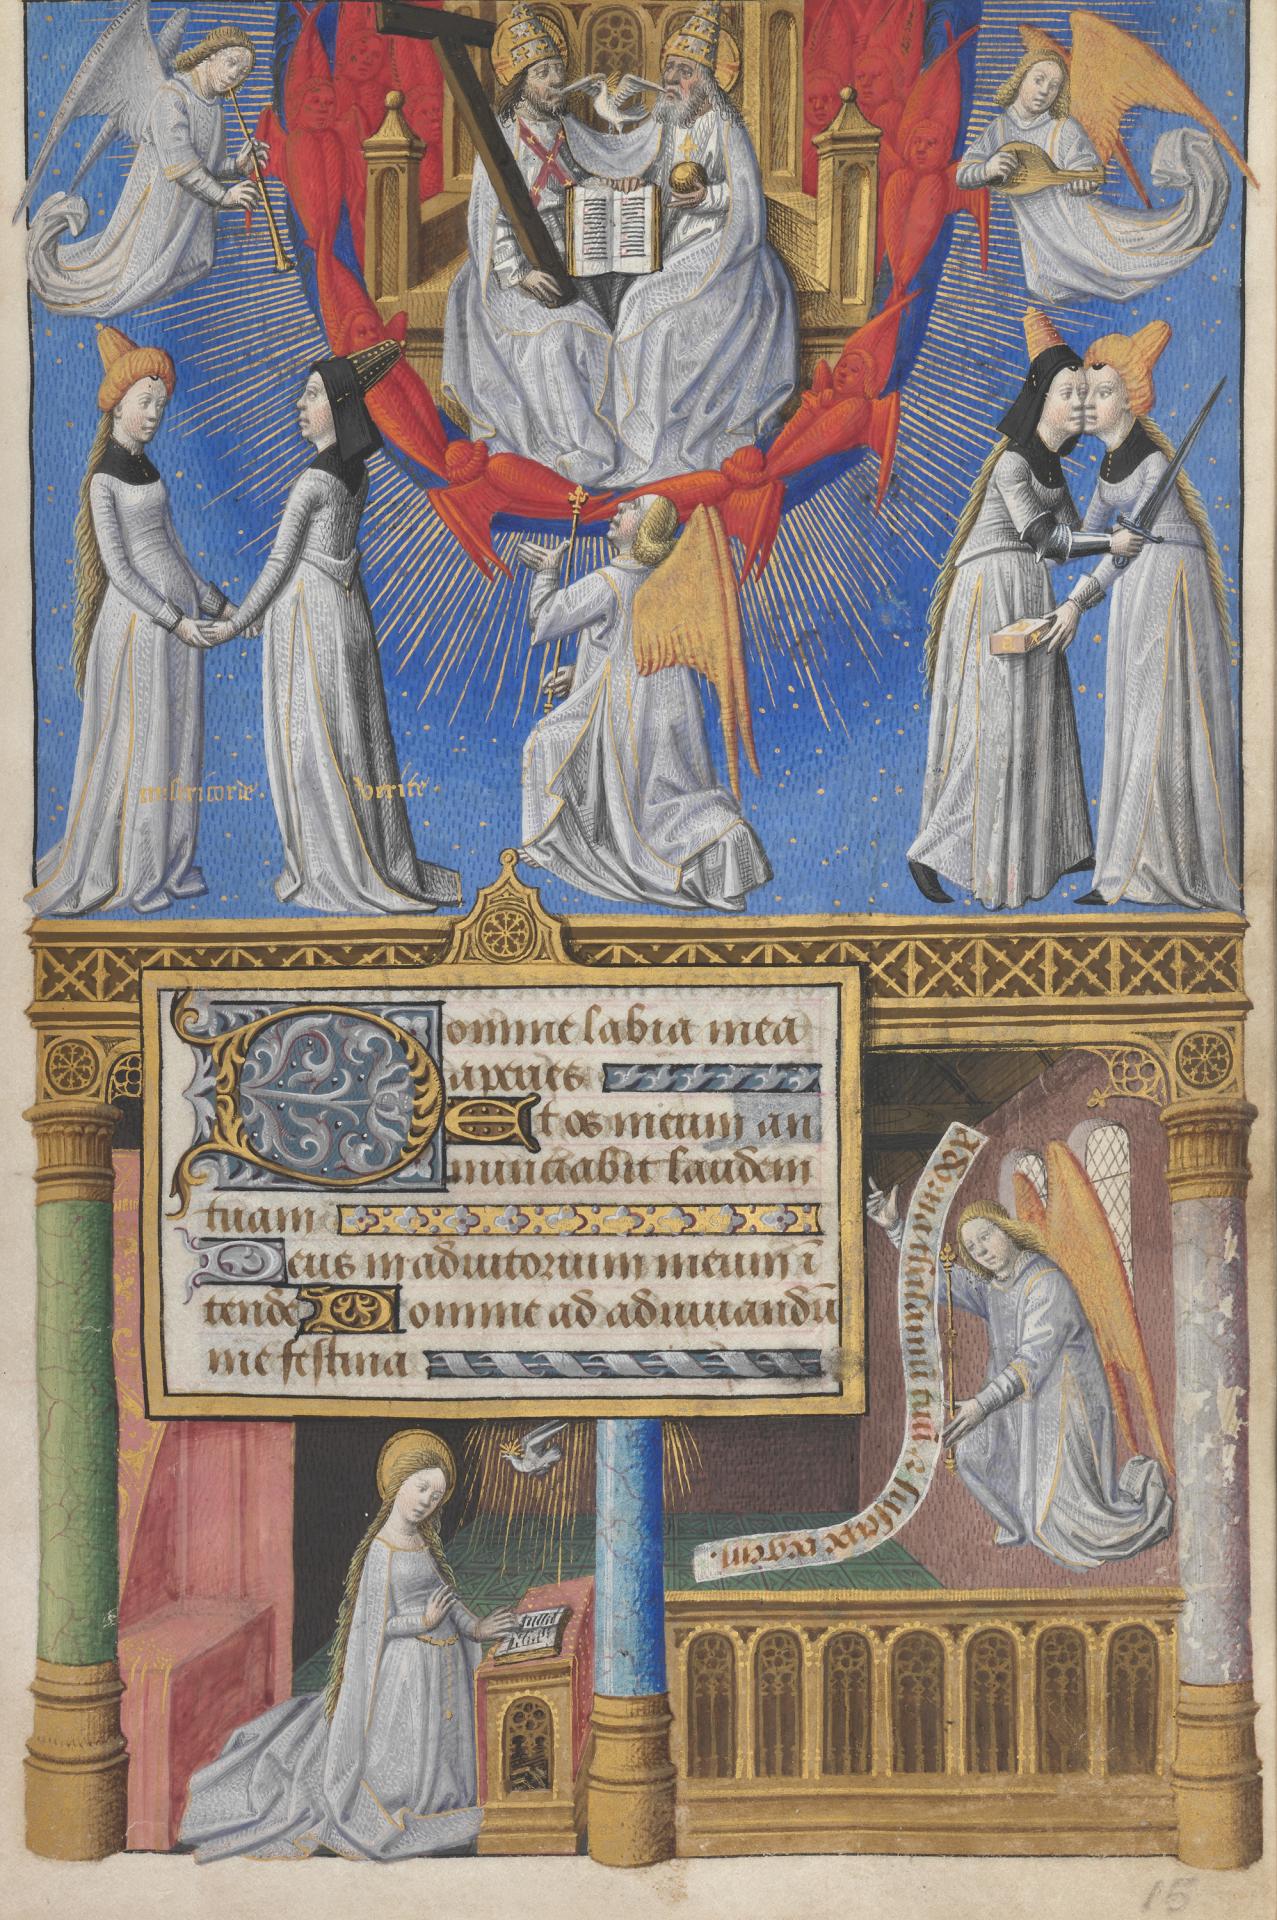 misericorde.
verite.
Domine labia mea
aperies
Et os meum an
nunciabit laudem
tuam
Deus in adiutorium meum i
tende Domine ad adiuuandū
me festina
15